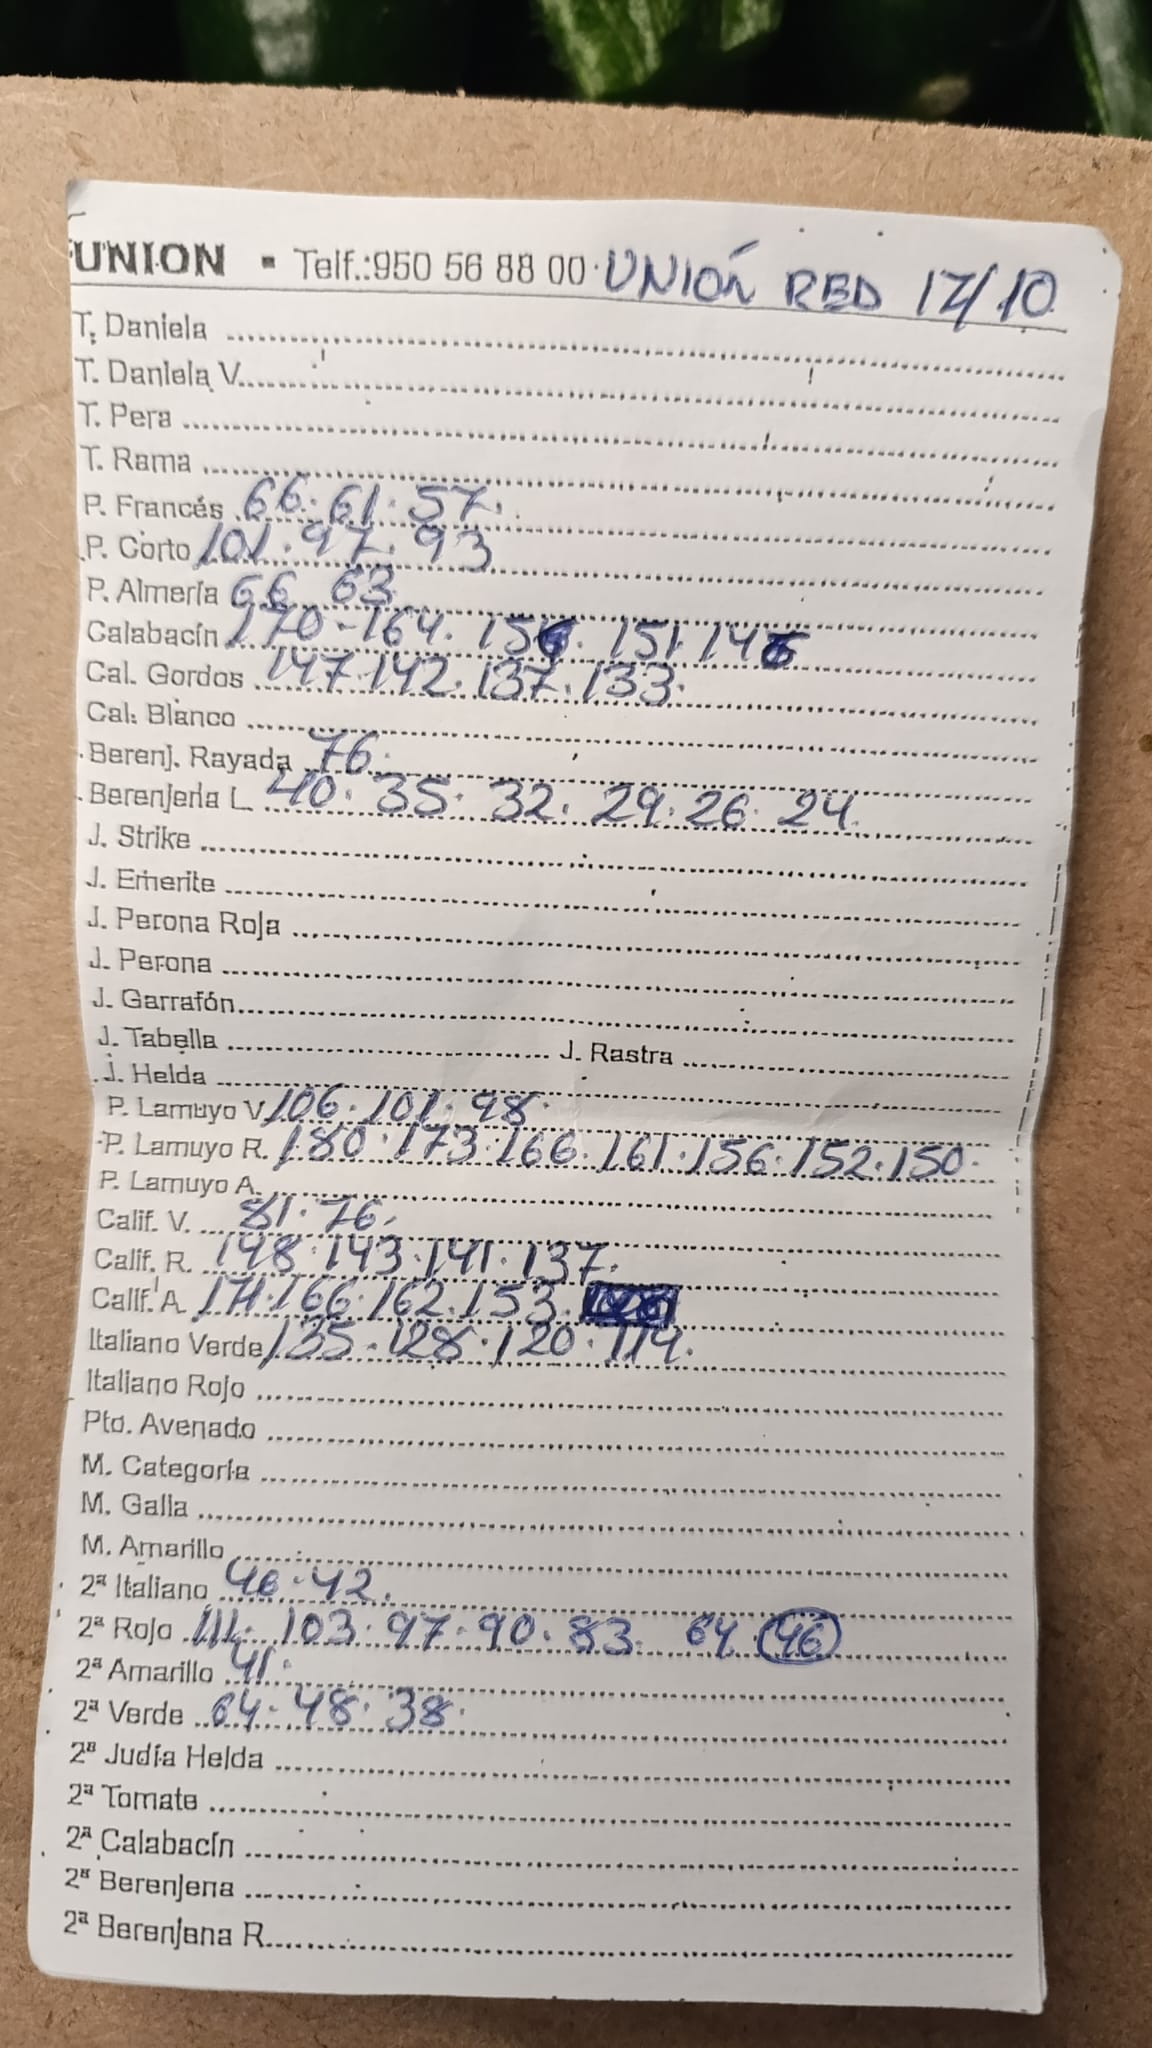 UNION - Telf.:950 56 88 00 UNIÓN RED 17/10
T. Daniela
T. Daniela V.
T. Pera
T. Rama
P. Francés 66. 61. 57.
P. Corto 101. 97. 93
P. Almería 66 63
Calabacín 170-164. 156. 151 146
Cal. Gordos 147 142. 137. 133.
Cal. Blanco
Berenj. Rayada 76.
Berenjena L 40. 35. 32. 29. 26. 24.
J. Strike
J. Emerite
J. Perona Roja
J. Perona
J. Garrafón
J. Tabella J. Rastra
J. Helda
P. Lamuyo V. 106. 101. 98.
P. Lamuyo R. 180. 173. 166. 161. 156. 152. 150.
P. Lamuyo A.
Calif. V. 81. 76.
Calif. R. 148. 143. 141. 137.
Calif. A 171. 166. 162. 153.
Italiano Verde 135. 128. 120. 114.
Italiano Rojo
Pto. Avenado
M. Categoría
M. Galia
M. Amarillo
2ª Italiano 46. 42.
2ª Rojo 111. 103. 97. 90. 83. 64. 46
2ª Amarillo 41.
2ª Verde 64. 48. 38.
2ª Judía Helda
2ª Tomate
2ª Calabacín
2ª Berenjena
2ª Berenjena R.